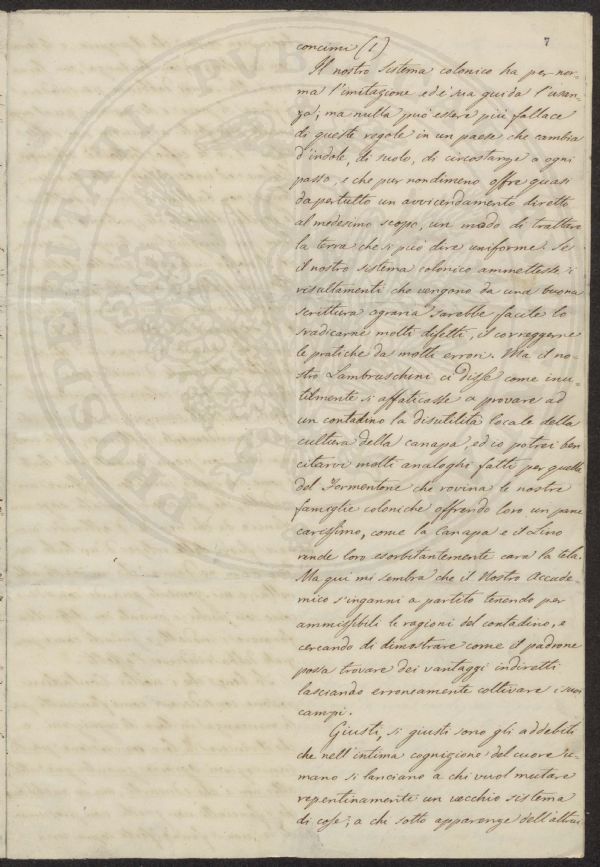 7
concimi (1)
Il nostro sistema colonico ha per nor-
ma l'imitazione ed è sua guida l'usan-
za; ma nulla può essere più fallace
di queste regole in un paese che cambia
d'indole, di suolo, di circostanze a ogni
passo, e che pur nondimeno offre quasi
da per tutto un avvicendamento diretto
al medesimo scopo, un modo di trattare
la terra che si può dire uniforme. Se
il nostro sistema colonico ammettesse i
risultamenti che vengono da una buona
scrittura agraria sarebbe facile lo
sradicarne molti difetti, il correggerne
le pratiche da molti errori. Ma il no-
stro Lambruschini ci disse come inu-
tilmente si affaticasse a provare ad
un contadino la disutilità locale della
cultura della canapa, ed io potrei ben
citarvi molti analoghi fatti per quella
del Formentone che rovina le nostre
famiglie coloniche offrendo loro un pane
carissimo, come la Canapa e il Lino
rende loro esorbitantemente cara la tela.
Ma qui mi sembra che il Nostro Accade-
mico s'inganni a partito tenendo per
ammissibili le ragioni del contadino, e
cercando di dimostrare come il padrone
possa trovare dei vantaggi indiretti
lasciando erroneamente coltivare i suoi
campi.
Giusti, si giusti sono gli addebiti
che nell'intima cognizione del cuore u-
mano si lanciano a chi vuol mutare
repentinamente un vecchio sistema
di cose; a chi sotto apparenze dell'altrui